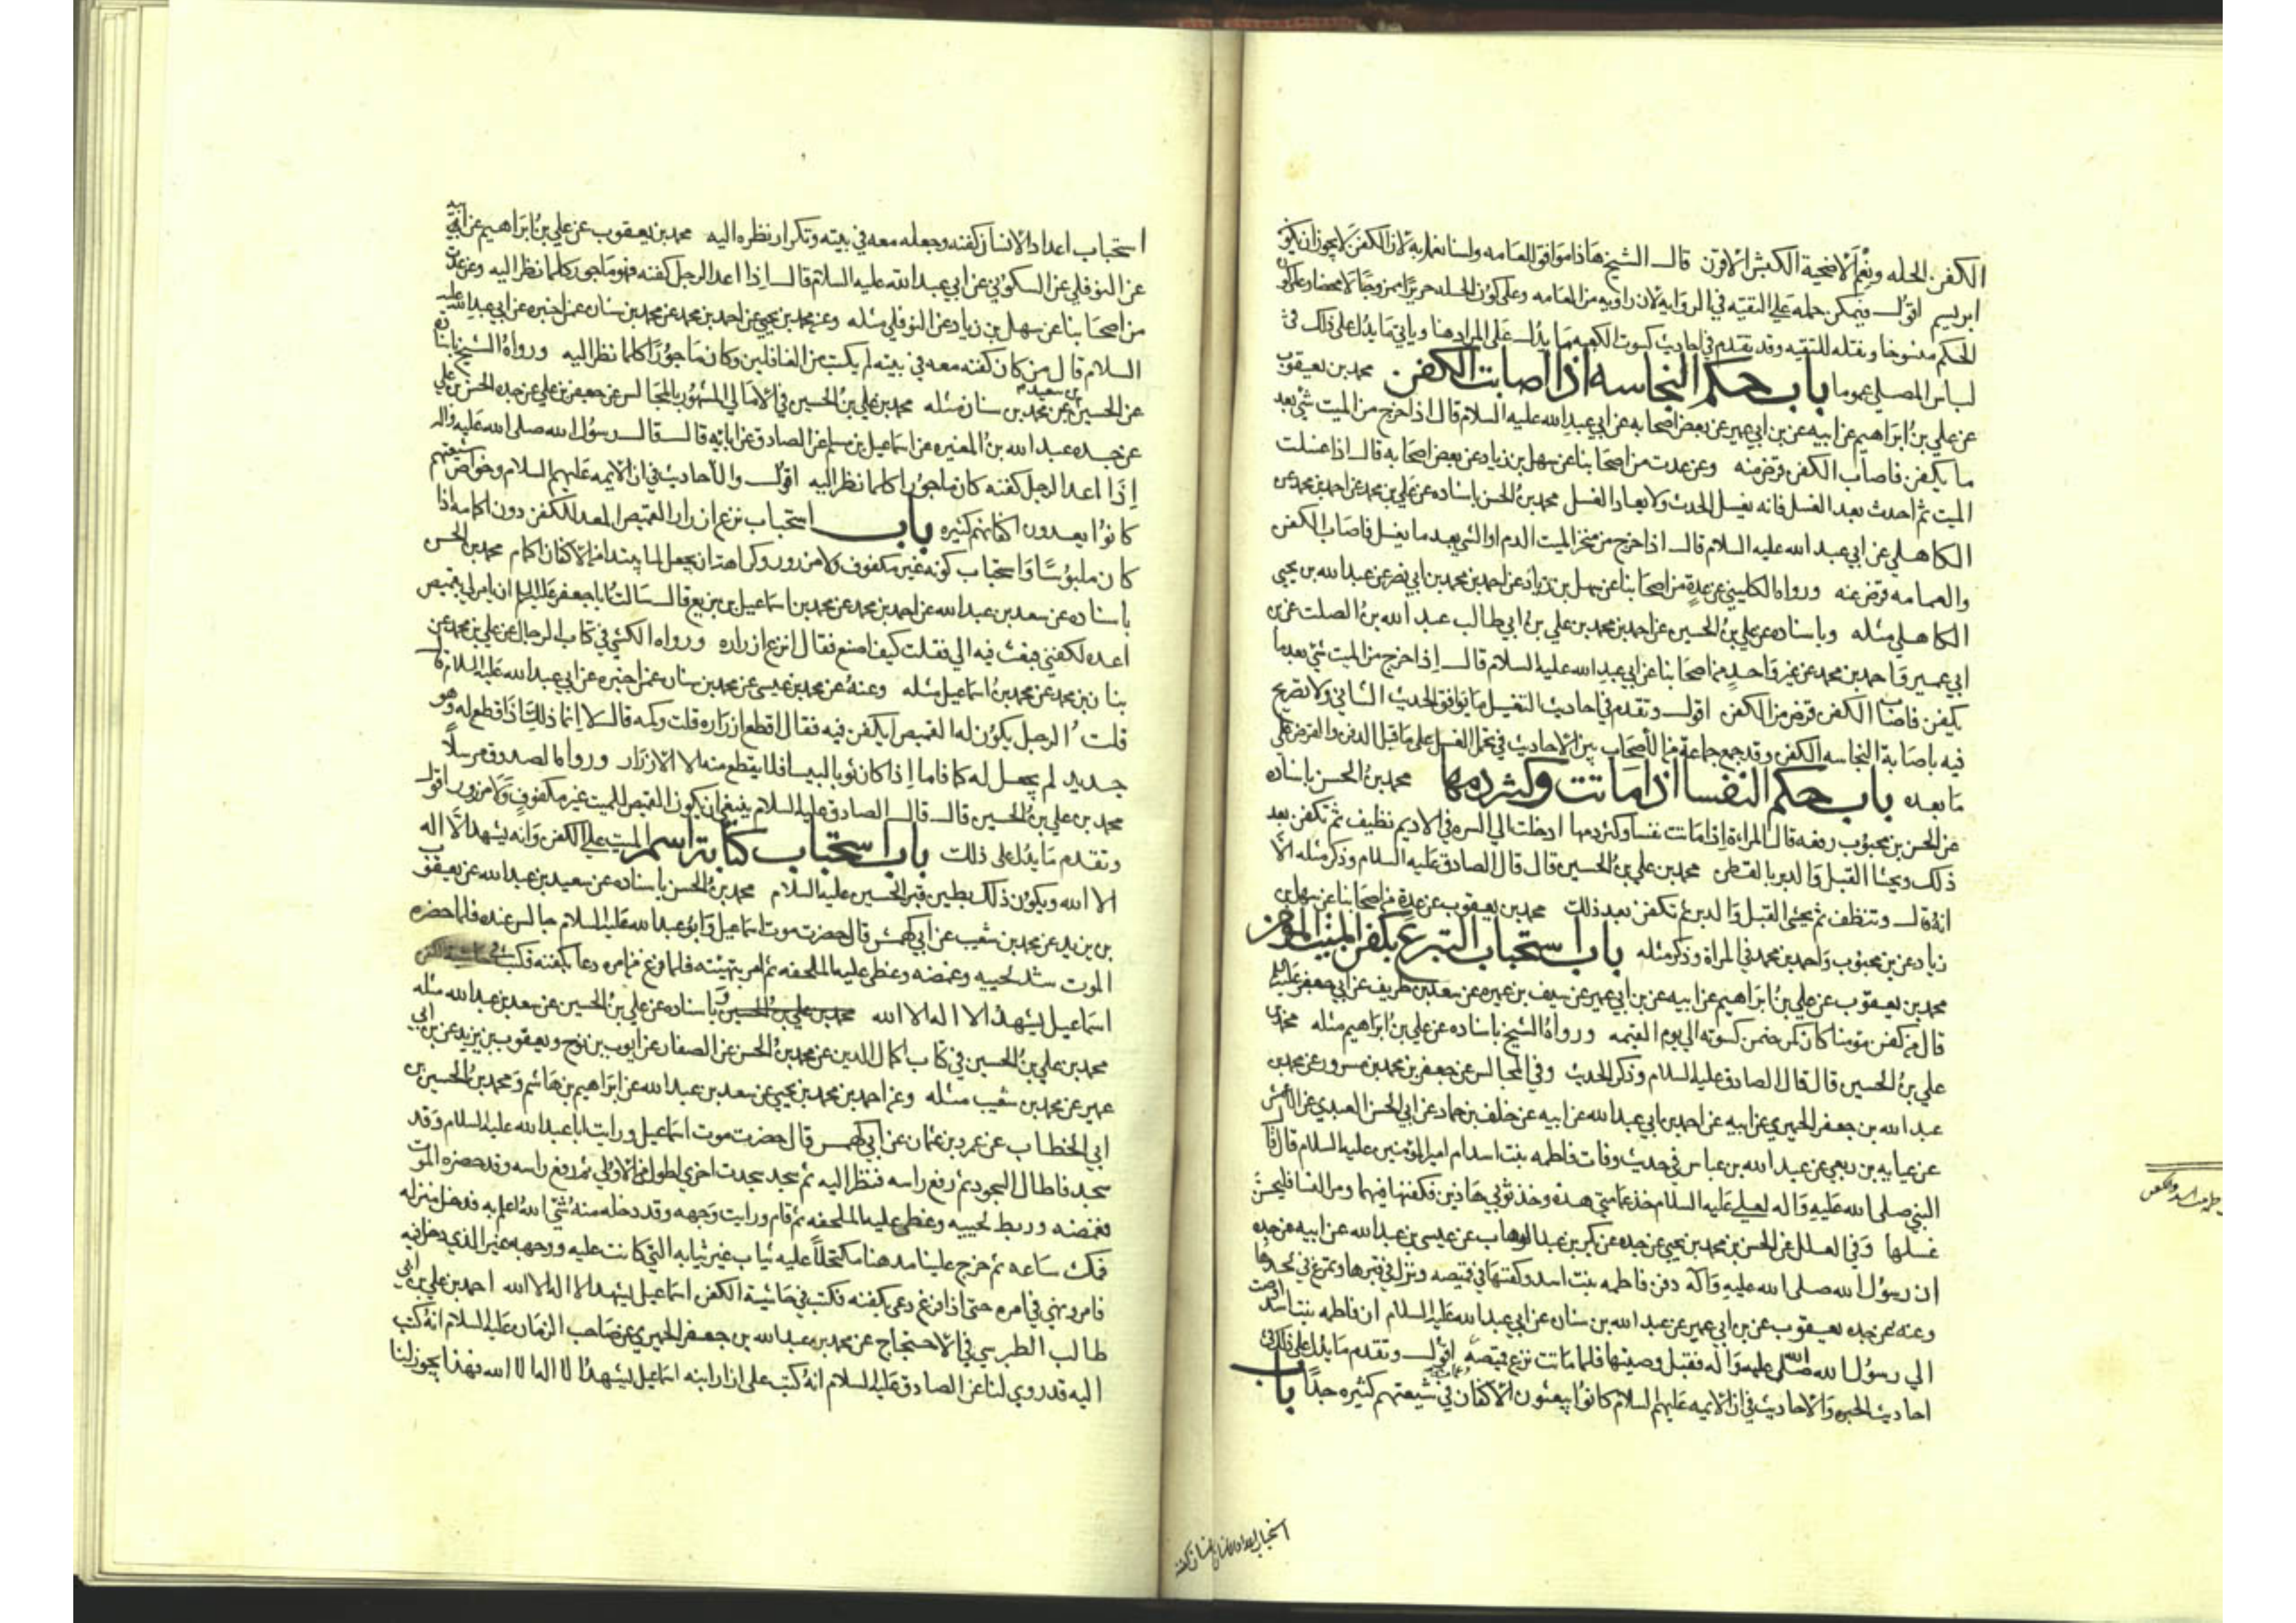 الكفن الحله ونعم الاضحية الكبش الاقرن قالـ الشيخ هاذا موافق للعامه ولسنا نعمل به لان الكفن لا يجوز ان يكو
ابريسم اقولـ ويمكن حمله علي التقيه في الروايه لان راويه من العامه وعلي كون الحله حريرًا ممزوجًا لا محضا وعلي كو
الحكم منسوخا ونقله للتقيه وقد تقدم في احاديث كسوت الكعبه ما يدلـ علي المراد هنا وياتي ما يدل علي ذلك في
لباس المصلي عموما باب حكم النجاسه اذا اصابت الكفن محمد بن يعقوب
عن علي بن ابراهيم عن ابيه عن بن ابي عمير عن بعض اصحابه عن ابي عبد الله عليه السلام قال اذا خرج من الميت شي بعد
ما يكفن فاصاب الكفن قرض منه وعن عدت من اصحابنا عن سهل بن زياد عن بعض اصحابه قالـ اذا غسلت
الميت ثم احدث بعد الغسل فانه يغسل الحدث ولا يعاد الغسل محمد بن الحسن باسناده عن علي بن محمد عن احمد بن محمد عن
الكاهلي عن ابي عبد الله عليه السلام قالـ اذا خرج من منخر الميت الدم او الشي بعد ما يغسل فاصاب الكفن
والعمامه قرض عنه ورواه الكليني عن عدة من اصحابنا عن سهل بن زياد عن احمد بن محمد بن ابي نصر عن عبد الله بن يحيي
الكاهلي مثله وباسناده عن علي بن الحسين عن احمد بن محمد بن علي بن ابي طالب عبد الله بن الصلت عن بن
ابي عمير واحمد بن محمد عن غير واحد من اصحابنا عن ابي عبد الله عليه السلام قالـ اذا خرج من الميت شي بعد ما
يكفن فاصاب الكفن قرض من الكفن اقولـ وتقدم في احاديث التغسيل ما يوافق الحديث الثاني ولا تصريح
فيه باصابة النجاسه الكفن وقد جمع جماعة من الأصحاب بين الاحاديث في تحمل الغسل علي ما قبل الدفن والقرض علي
ما بعده باب حكم النفسا اذا ماتت وكثر دمها محمد بن الحسن باسناده
عن الحسن بن محبوب رفعه قال المراءة اذا ماتت نفسا وكثر دمها ادخلت الي السره في الاديم نظيف ثم تكفن بعد
ذلك ويحشا القبل والدبر بالقطن محمد بن علي بن الحسين قال قال الصادق عليه السلام وذكر مثله الّا
انه قالـ وتنظف ثم يحشي القبل والدبر ثم تكفن بعد ذلك محمد بن يعقوب عن عدة من اصحابنا عن سهل بن
زياد عن بن محبوب واحمد بن محمد في المراة وذكر مثله باب استحباب التبرع بكفن الميت المومن
محمد بن يعقوب عن علي بن ابراهيم عن ابيه عن بن ابي عمير عن سيف بن عميره عن سعد بن طريف عن ابي جعفر عليه
قال من كفن مؤمنا كان كمن ضمن كسوته الي يوم القيمه ورواه الشيخ باسناده عن علي بن ابراهيم مثله محمد بن
علي بن الحسين قال قال الصادق عليه السلام وذكر الحديث وفي المجالس عن جعفر بن محمد بن مسرور عن محمد بن
عبد الله بن جعفر الحميري عن ابيه عن احمد بن ابي عبد الله عن ابيه عن خلف بن حماد عن ابي الحسن العبدي عن الاعمش
عن عبايه بن ربعي عن عبد الله بن عباس في حديث وفات فاطمه بنت اسد ام امير المؤمنين عليه السلام قال قا
النبي صلي الله عليه واله لعلي عليه السلام خذ عمامتي هذه وخذ ثوبي هاذين فكفنها فيهما ومر النسا فليحسن
غسلها وفي العلل عن الحسن بن محمد بن يحيي عن جده عن بكر بن عبد الوهاب عن عيسي بن عبد الله عن ابيه عن جده
ان رسول الله صلي الله عليه واله دفن فاطمه بنت اسد وكفنها في قميصه ونزل في قبرها وتمرغ في لحدها
وعنه عن جده يعقوب عن بن ابي عمير عن عبد الله بن سنان عن ابي عبد الله عليه السلام ان فاطمه بنت اسد اوصت
الي رسول الله صلي الله عليه واله فقبل وصيتها فلما ماتت نزع قميصه اقولـ وتقدم ما يدل علي ذلك في
احاديث الحبره والاحاديث في ان الايمه عليهم السلام كانوا يبعثون الاكفان في شيعتهم كثيره جدًا باب
استحباب اعداد الانسان كفنه
استحباب اعداد الانسان كفنه وجعله معه في بيته وتكرار نظره اليه محمد بن يعقوب عن علي بن ابراهيم عن ابيه
عن النوفلي عن السكوني عن ابي عبد الله عليه السلام قالـ اذا اعد الرجل كفنه فهو ماجور كلما نظر اليه وعن عدت
من اصحابنا عن سهل بن زياد عن النوفلي مثله وعن محمد بن يحيي عن احمد بن محمد عن محمد بن سنان عمن اخبره عن ابي عبد الله عليه
السلام قال من كان كفنه معه في بيته لم يكتب من الغافلين وكان ماجورًا كلما نظر اليه ورواه الشيخ باسناده
عن الحسين بن سعيد عن محمد بن سنان مثله محمد بن علي بن الحسين في الامالي المشهور بالمجالس عن جعفر بن علي عن جده الحسن بن علي
عن جده عبد الله بن المغيره عن اسماعيل بن مسلم عن الصادق عن ابائه قالـ قالـ رسول الله صلي الله عليه واله
اذا اعد الرجل كفنه كان ماجورًا كلما نظر اليه اقولـ والأحاديث في ان الايمه عليهم السلام وخواص شيعتهم
كانوا يعدون اكفانهم كثيره باب استحباب نزع ازرار القميص المعد للكفن دون اكمامه اذا
كان ملبوسًا واستحباب كونه غير مكفوف ولا مزرور وكراهة ان يجعل لما يبتدا من الاكفان اكمام محمد بن الحسن
باسناده عن سعد بن عبد الله عن احمد بن محمد عن محمد بن اسماعيل بن بزيع قالـ سالت ابا جعفر عليه السلام ان يامر لي بقميص
اعده لكفني فبعث فيه الي فقلت كيف اصنع فقال انزع ازراره ورواه الكشي في كتاب الرجال عن علي بن محمد عن
بنان بن محمد عن محمد بن اسماعيل مثله وعنه عن محمد بن عيسي عن محمد بن سنان عمن اخبره عن ابي عبد الله عليه السلام قالـ
قلت الرجل يكون له القميص ايكفن فيه فقال اقطع ازراره قلت وكمه قالـ لا انما ذلك اذا قطع له وهو
جديد لم يجعل له كما فاما اذا كان ثوبا لبيسا فلا يقطع منه الا الازرار ورواه الصدوق مرسلًا
محمد بن علي بن الحسين قالـ قالـ الصادق عليه السلام ينبغي ان يكون القميص للميت غير مكفوف ولا مزرور اقولـ
وتقدم ما يدل علي ذلك باب استحباب كتابة اسم الميت علي الكفن وانه يشهد الّا اله
الا الله ويكون ذلك بطين قبر الحسين عليه السلام محمد بن الحسن باسناده عن سعيد بن عبد الله عن يعقوب
بن يزيد عن محمد بن شعيب عن ابي كهمش قال حضرت موت اسماعيل وابو عبد الله عليه السلام جالس عنده فلما حضره
الموت شد لحييه وغمضه وغطي عليه الملحفه ثم امر بتهيئته فلما فرغ من امره دعا بكفنه فكتب في حاشيه الكفن
اسماعيل يشهد الا اله الا الله محمد بن علي بن الحسين وباسناده عن علي بن الحسين عن سعد بن عبد الله مثله
محمد بن علي بن الحسين في كتاب اكمال الدين عن محمد بن الحسن عن الصفار عن ايوب بن نوح ويعقوب بن يزيد عن بن ابي
عمير عن محمد بن شعيب مثله وعن احمد بن محمد بن يحيي عن سعد بن عبد الله عن ابراهيم بن هاشم ومحمد بن الحسين بن
ابي الخطاب عن عمرو بن عثمان عن ابي كهمس قال حضرت موت اسماعيل ورايت ابا عبد الله عليه السلام وقد
سجد فاطال السجود ثم رفع راسه فنظر اليه ثم سجد سجدت اخري اطول من الاولي ثم رفع راسه وقد حضره الموت
فغمضه وربط لحييه وغطي عليه الملحفه ثم قام ورايت وجهه وقد دخله منه شي الله اعلم به فدخل منزله
فمكث ساعه ثم خرج علينا مدهنا مكتحلًا عليه ثياب غير ثيابه التي كانت عليه ووجهه غير الذي دخل فيه
فامر ونهي في امره حتي اذا فرغ دعي بكفنه فكتب في حاشية الكفن اسماعيل يشهد الا اله الا الله احمد بن علي بن ابي
طالب الطبرسي في الاحتجاج عن محمد بن عبد الله بن جعفر الحميري عن صاحب الزمان عليه السلام انه كتب
اليه قد روي لنا عن الصادق عليه السلام انه كتب علي ازار ابنه اسماعيل يشهد ان لا اله الا الله فهذا يجوز لنا